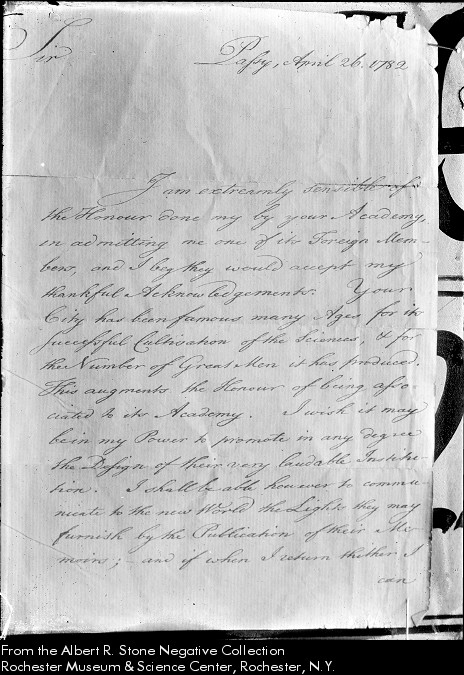 Sir
Passy, April 26. 1782
I am extreamly sensible of
the Honour done my by your Academy,
in admitting me one of its Foreign Mem-
bers, and I beg they would accept my
thankful Acknowledgements. Your
City has been famous many Ages for its
successful Cultivation of the Sciences, & for
the Number of Great Men it has produced.
This augments the Honour of being asso-
ciated to its Academy. I wish it may
be in my Power to promote in any degree
the Design of their very laudable Institu-
tion. I shall be able however to commu-
nicate to the new World the Lights they may
furnish by the Publication of their Me-
moirs; - and if when I return thether I
can
From the Albert R. Stone Negative Collection
Rochester Museum & Science Center, Rochester, N.Y.